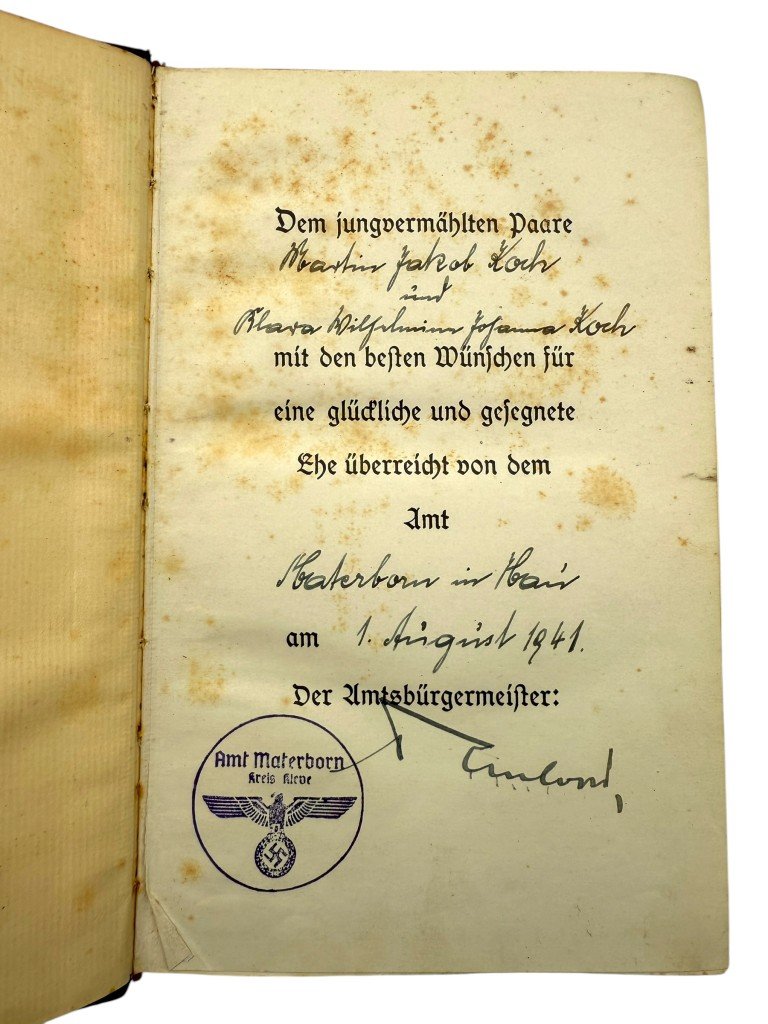 Dem jungvermählten Paare
Martin Jakob Koch
und
Klara Wilhelmine Johanna Koch
mit den besten Wünschen für
eine glückliche und gesegnete
Ehe überreicht von dem
Amt
Materborn in Hau
am 1. August 1941.
Der Amtsbürgermeister:
Amt Materborn
Kreis Kleve